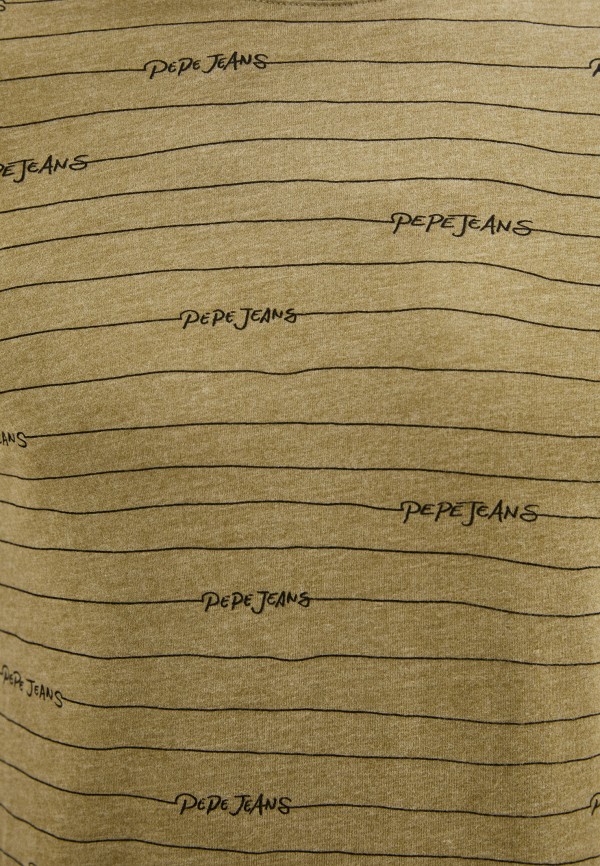 PEPE JEANS
PEJEANS
PEPE JEANS
PEPE JEANS
ANS
PEPE JEANS
PEPE JEANS
PEPE JEANS
PEPE JEANS